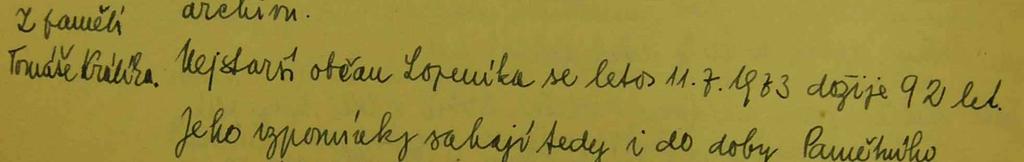 Z pamětí
Tomáše Králíka.
archivu.
Nejstarší občan Lopeníka se letos 11.7.1973 dožije 92 let.
Jeho vzpomínky sahají tedy i do doby Pamětního